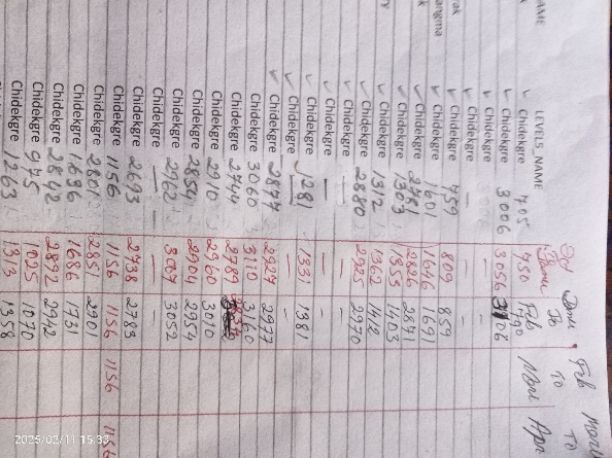 LEVELS_NAME Jan To Feb Feb TO Mar March TO Apr
✓ Chidekgre 705 750 790
✓ Chidekgre 3006 3056 3106
✓ Chidekgre — — —
✓ Chidekgre — — —
✓ Chidekgre 759 809 859
✓ Chidekgre 1601 1646 1691
✓ Chidekgre 2781 2826 2871
✓ Chidekgre 1303 1353 1403
✓ Chidekgre 1312 1362 1412
✓ Chidekgre 2880 2925 2970
✓ Chidekgre — — —
✓ Chidekgre — — —
✓ Chidekgre 1281 1331 1381
✓ Chidekgre — — —
✓ Chidekgre 2877 2927 2977
Chidekgre 3060 3110 3160
Chidekgre 2744 2789
Chidekgre 2910 2960 3010
Chidekgre 2854 2904 2954
Chidekgre 2962 3007 3052
Chidekgre — — —
Chidekgre 2693 2738 2783
Chidekgre 1156 1156 1156 1156
Chidekgre 2801 2851 2901
Chidekgre 1636 1686 1731
Chidekgre 2842 2892 2942
Chidekgre 975 1025 1070
Chidekgre 1263 1313 1358
2025/02/11 15:33